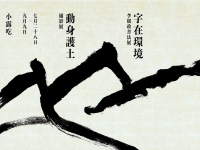 字在環境
李根政書法展
動身護土
攝影展
七月二十八日
九月九日
小露吃